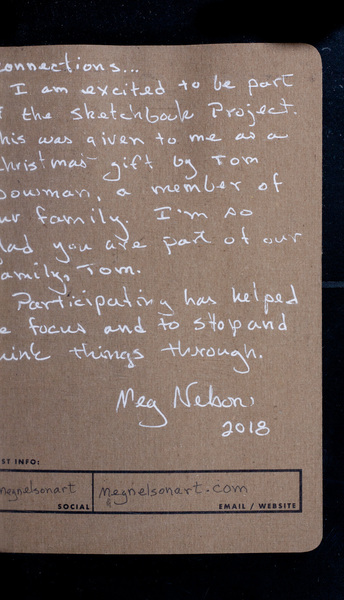 onnections...
I am excited to be part
f the Sketchbook Project.
his was given to me as a
christmas gift by Tom
Bowman, a member of
ur family. I'm so
lad you are part of our
amily, Tom.
Participating has helped
e focus and to stop and
hink things through.
Meg Nelson,
2018
ST INFO:
megnelsonart megnelsonart.com
SOCIAL EMAIL / WEBSITE